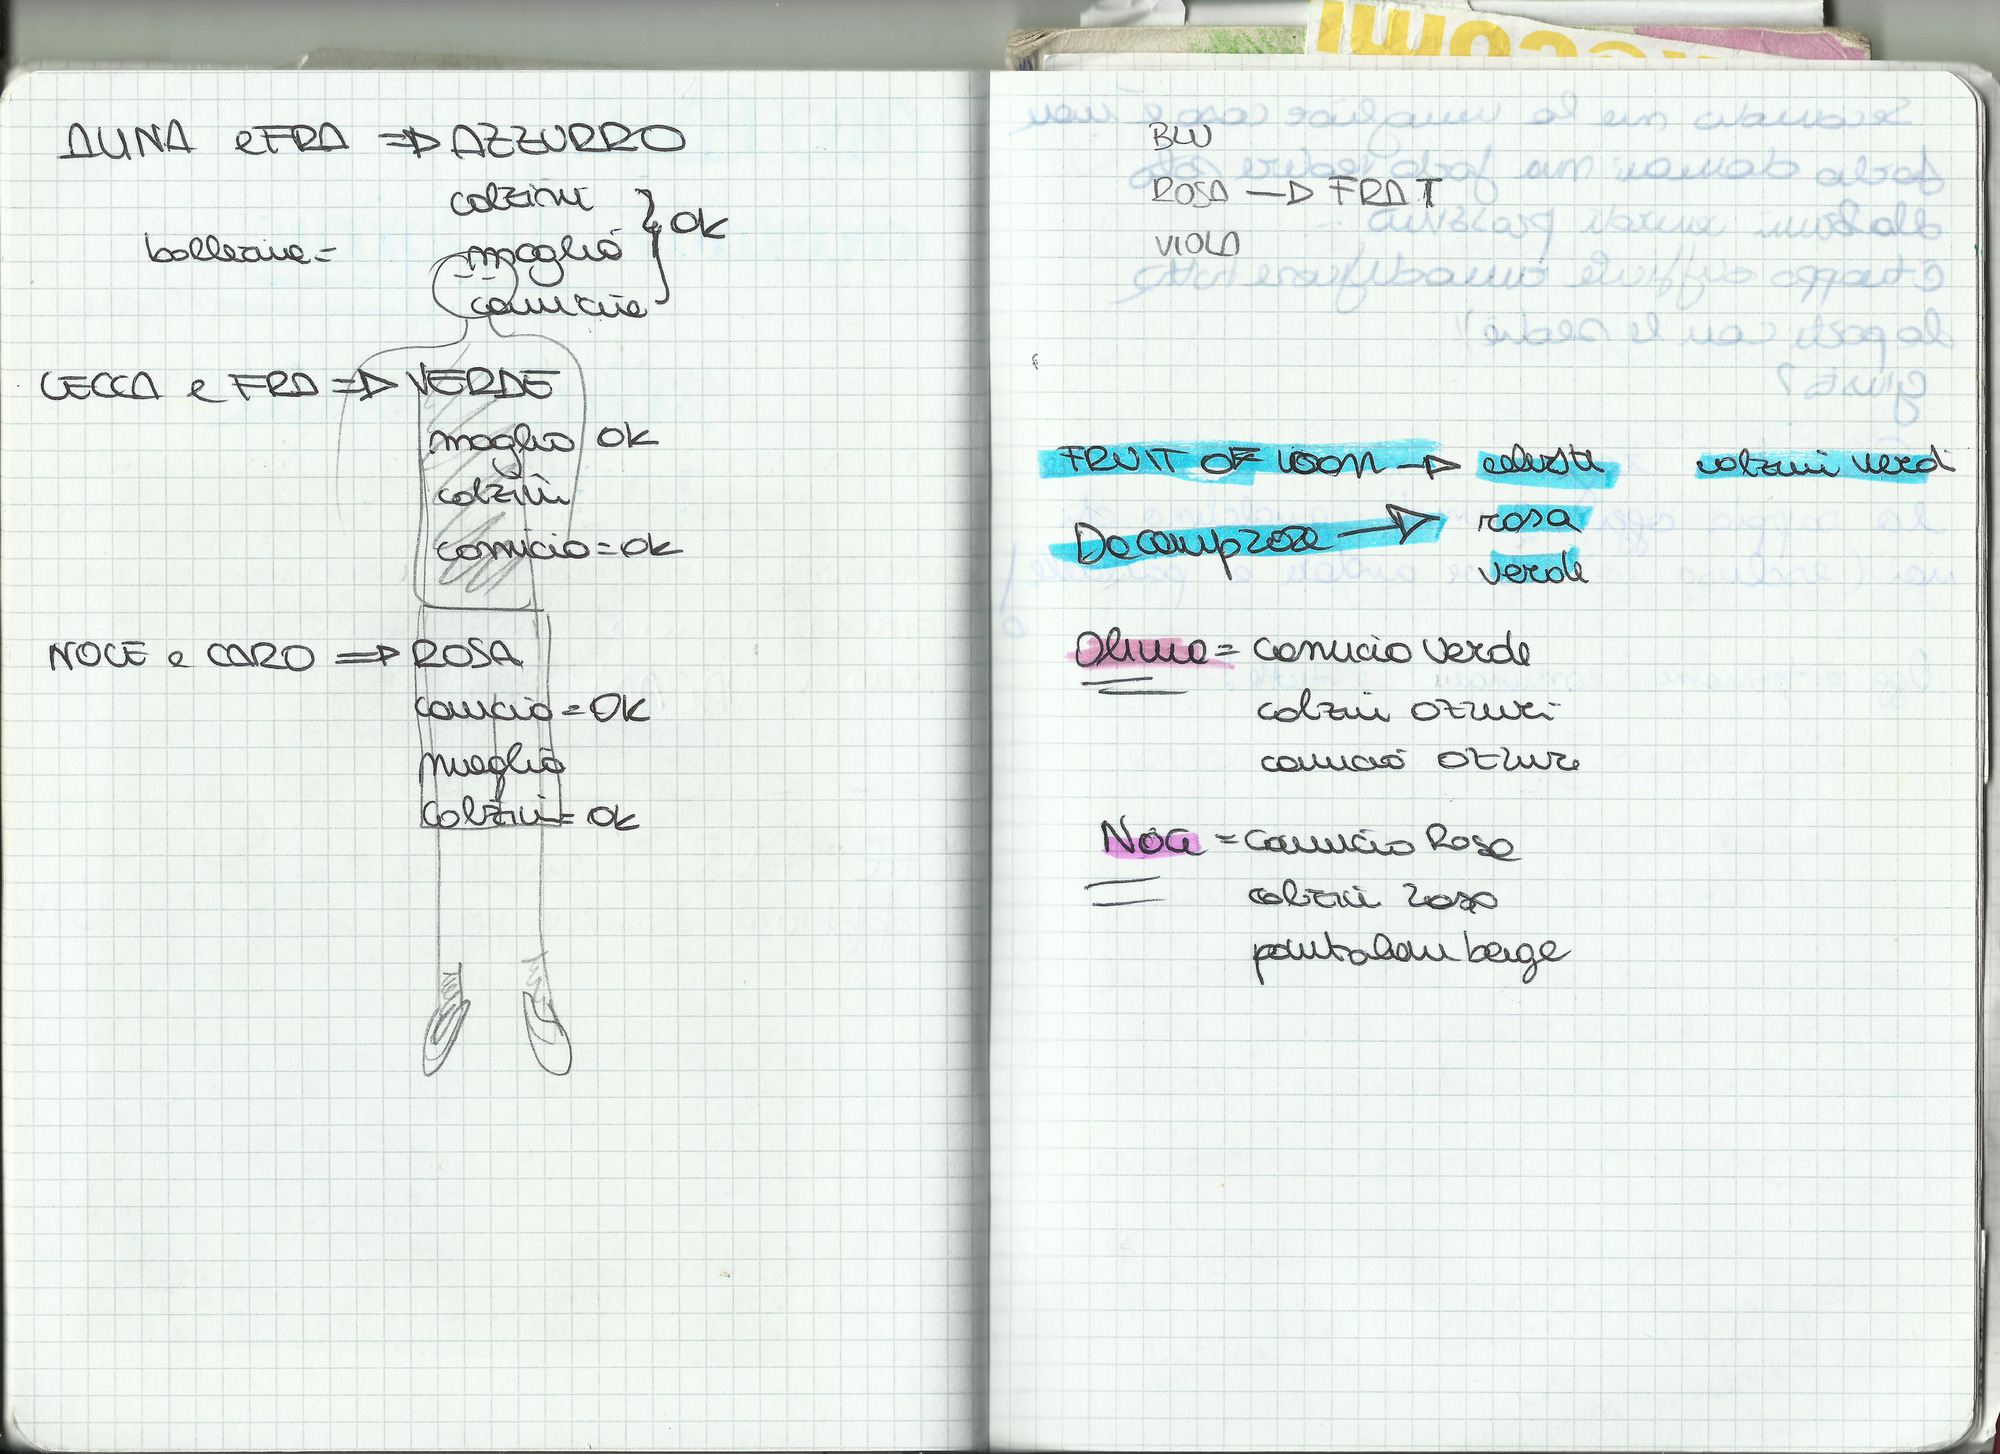 AUNA e FRA => AZZURRO
calzini
ballerine =
maglia
OK
camicia
CECCA e FRA => VERDE
maglia OK
calzini
camicia = OK
NOCE e CARO => ROSA
camicia = OK
maglia
calzini = OK
BLU
ROSA -> FRA T
VIOLA
FRUIT OF LOOM -> celeste calzini verdi
Da comprare -> rosa
verde
= camicia verde
calzini azzurri
camicia azzurra
Noce = camicia Rosa
calzini rosa
pantaloni beige